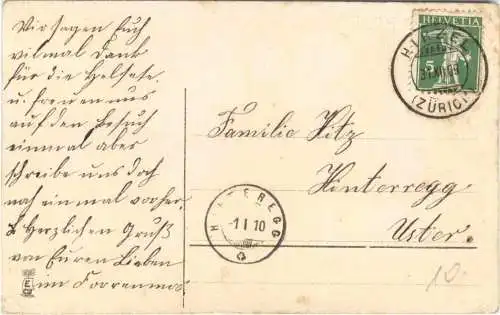 Wir sagen Euch
vilmal Dank
für die Helsete
u. freuen uns
auf den Besuch
einmal aber
schreibe uns doch
noch einmal vorher.
Herzlichen Gruß
von Euren Lieben
im
HELVETIA
5
HIRZEL
31.XII.09
(ZÜRICH)
Familie Hitz
Hinteregg
Uster.
HINTEREGG
-1 I 10
10.